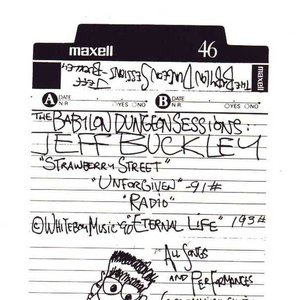 maxell 46
JEFF BUCKLEY
THE BABYLON DUNGEON SESSIONS
maxell
A DATE N R YES NO B DATE N R YES NO
THE BABYLON DUNGEON SESSIONS:
JEFF BUCKLEY
"STRAWBERRY STREET"
"UNFORGIVEN" -91#
"RADIO"
© WHITEBOY MUSIC '90 "ETERNAL LIFE" 193#
ALL SONGS
AND PERFORMANCES